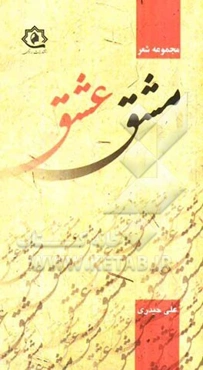 مجموعه شعر
مشق عشق
WWW.KETAB.IR
علی حیدری